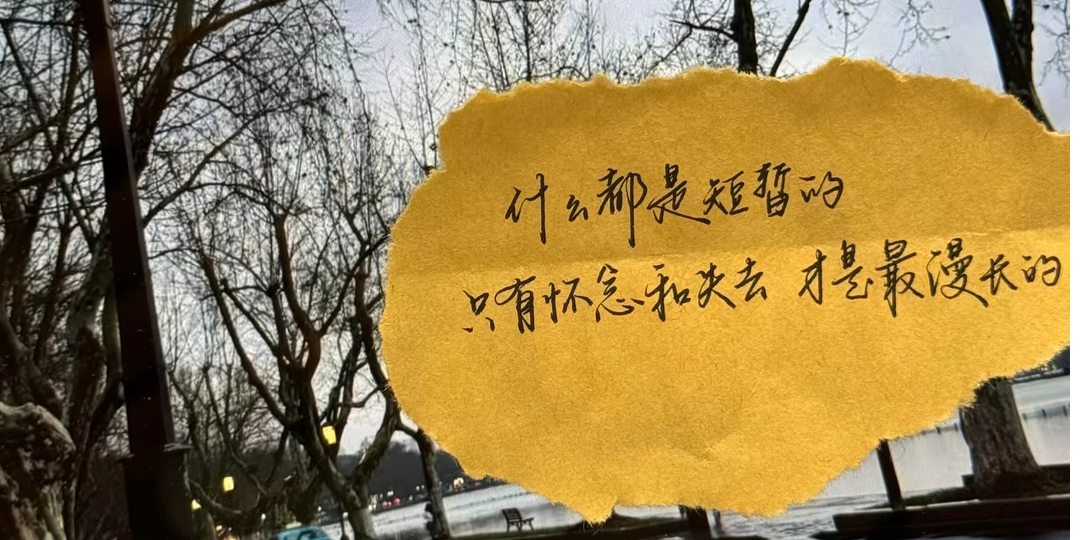 什么都是短暂的
只有怀念和失去 才是最漫长的